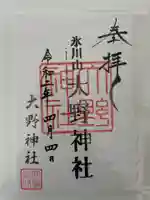 奉拝
氷川山
大野神社
令和二年四月四日
大野神社